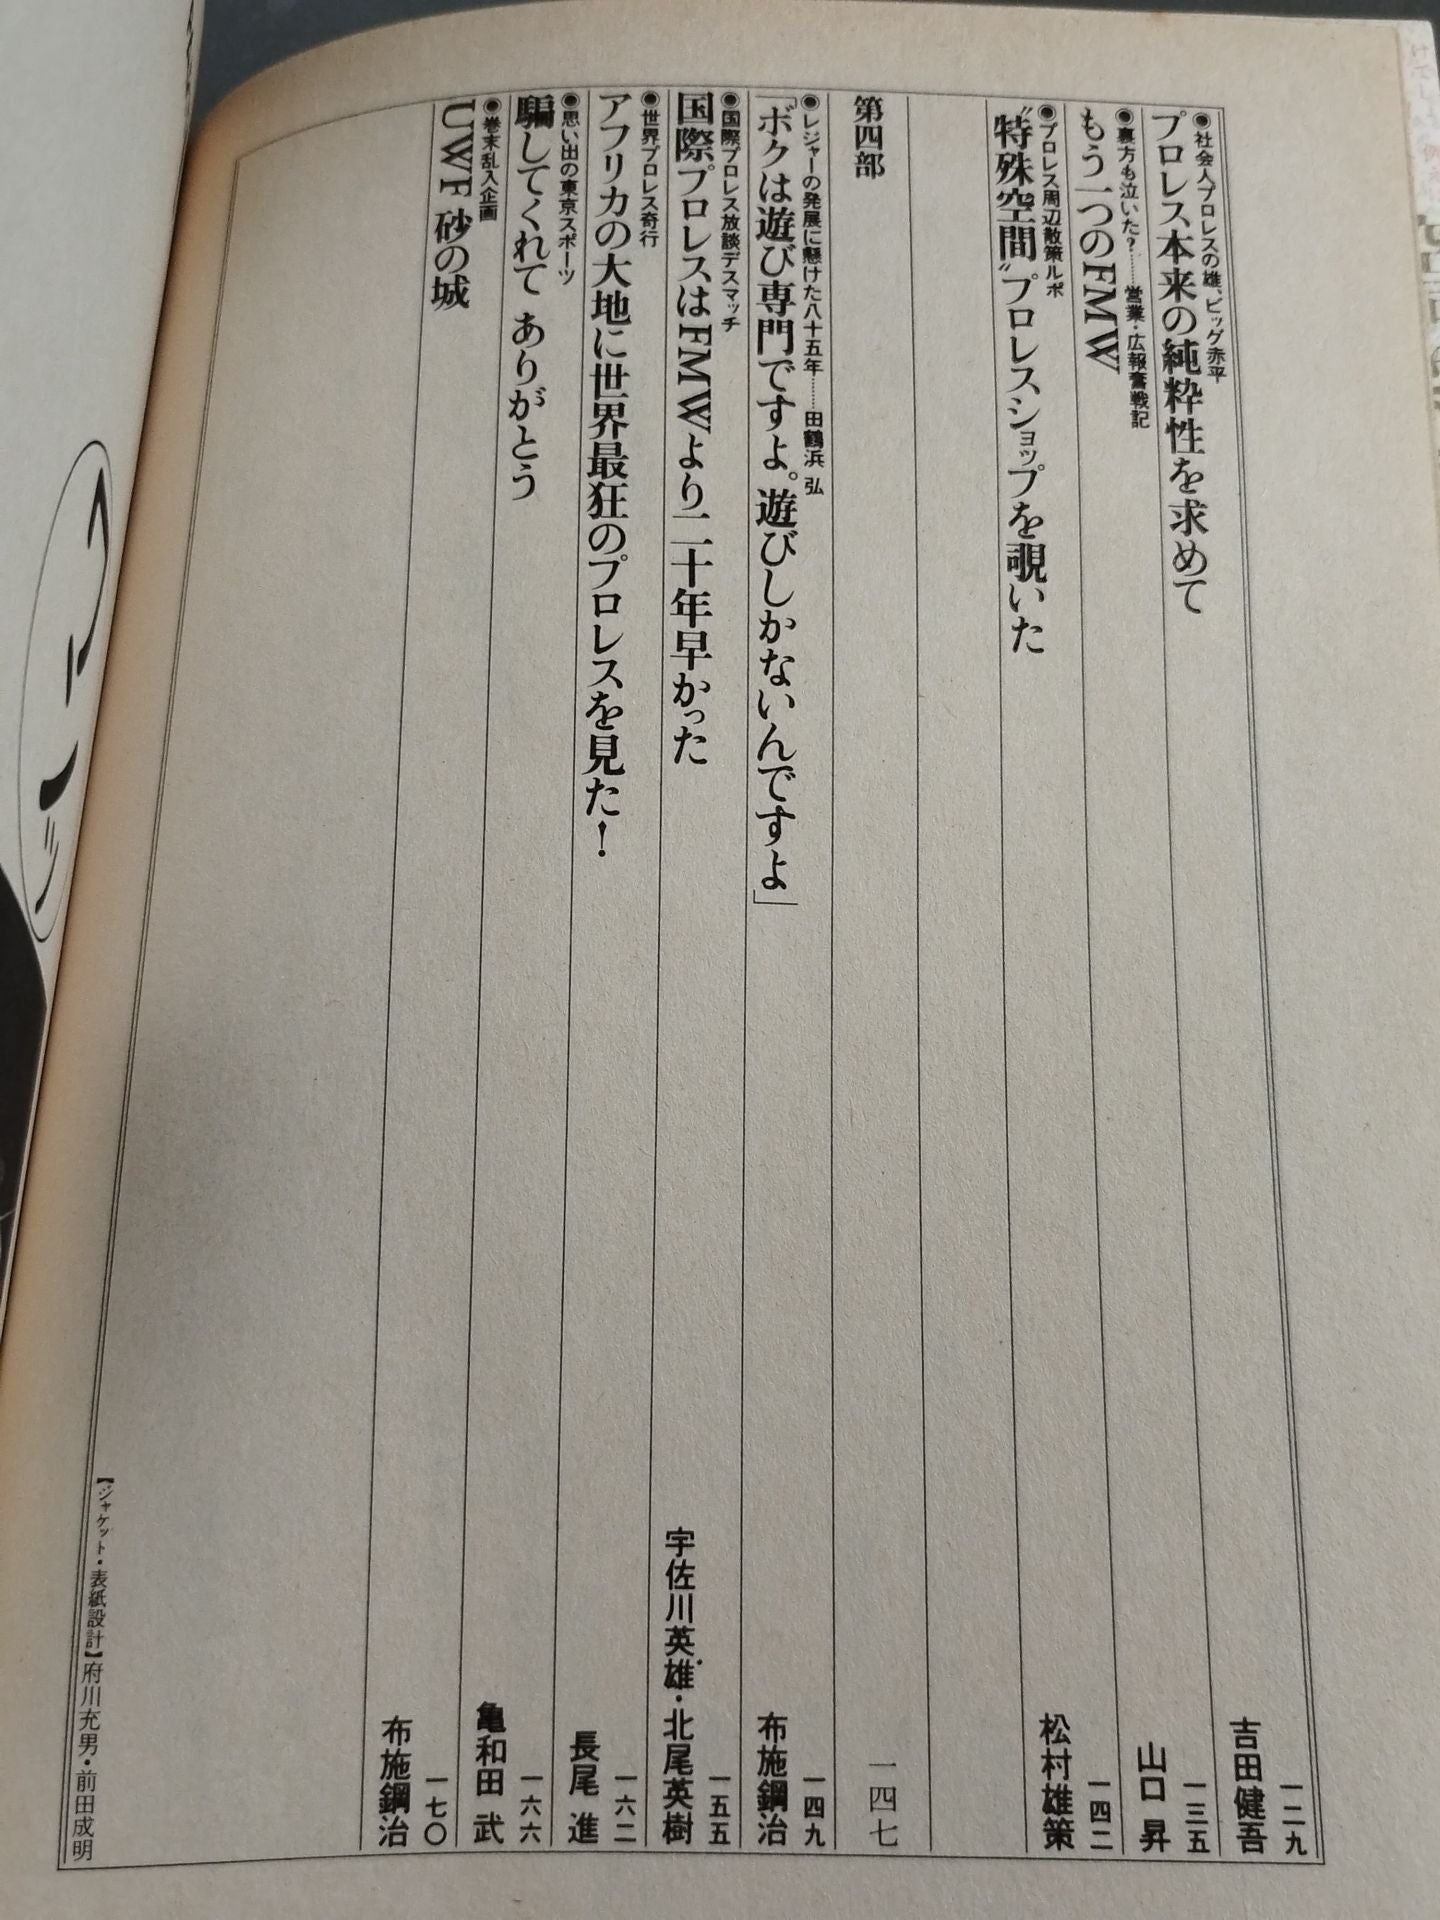 ◉社会人プロレスの雄、ビッグ赤平
プロレス本来の純粋性を求めて
吉田健吾
一二九
◉裏方も泣いた?……営業・広報奮戦記
もう一つのFMW
山口 昇
一三五
◉プロレス周辺散策ルポ
〝特殊空間〟プロレスショップを覗いた
松村雄策
一四二
第四部
一四七
◉レジャーの発展に懸けた八十五年……田鶴浜 弘
「ボクは遊び専門ですよ。遊びしかないんですよ」
布施鋼治
一四九
◉国際プロレス放談デスマッチ
国際プロレスはFMWより二十年早かった
宇佐川英雄・北尾英樹
一五五
◉世界プロレス奇行
アフリカの大地に世界最狂のプロレスを見た!
長尾 進
一六二
◉思い出の東京スポーツ
騙してくれて ありがとう
亀和田 武
一六六
◉巻末乱入企画
UWF 砂の城
布施鋼治
一七〇
【ジャケット・表紙設計】府川充男・前田成明